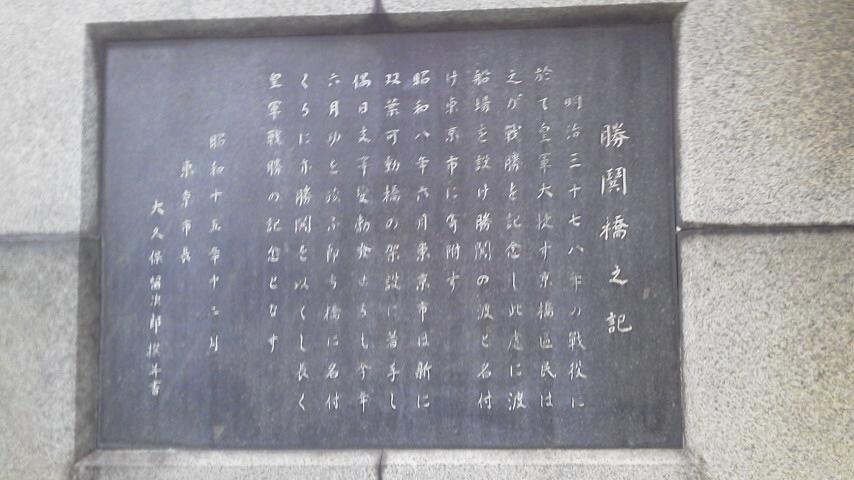 勝鬨橋之記
明治三十七八年の戦役に
於て皇軍大捷す京橋區民は
之が戦勝を記念し此處に渡
船場を設け勝鬨の渡と名付
け東京市に寄附す
昭和八年六月東京市は新に
双葉可動橋の架設に着手し
偶日支事變勃發せるも今年
六月功を竣ふ即ち橋に名付
くるに亦勝鬨を以てし長く
皇軍戦勝の記念となす
昭和十五年十二月
東京市長
大久保留次郎撰并書